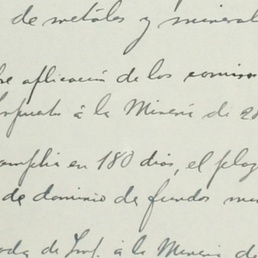 de metales y mineral
aplicación de los comiso
Impuesto á la Minería de
amplía en 180 dias, el plaz
de dominio de fundos min
de Imp. á la Mineria de